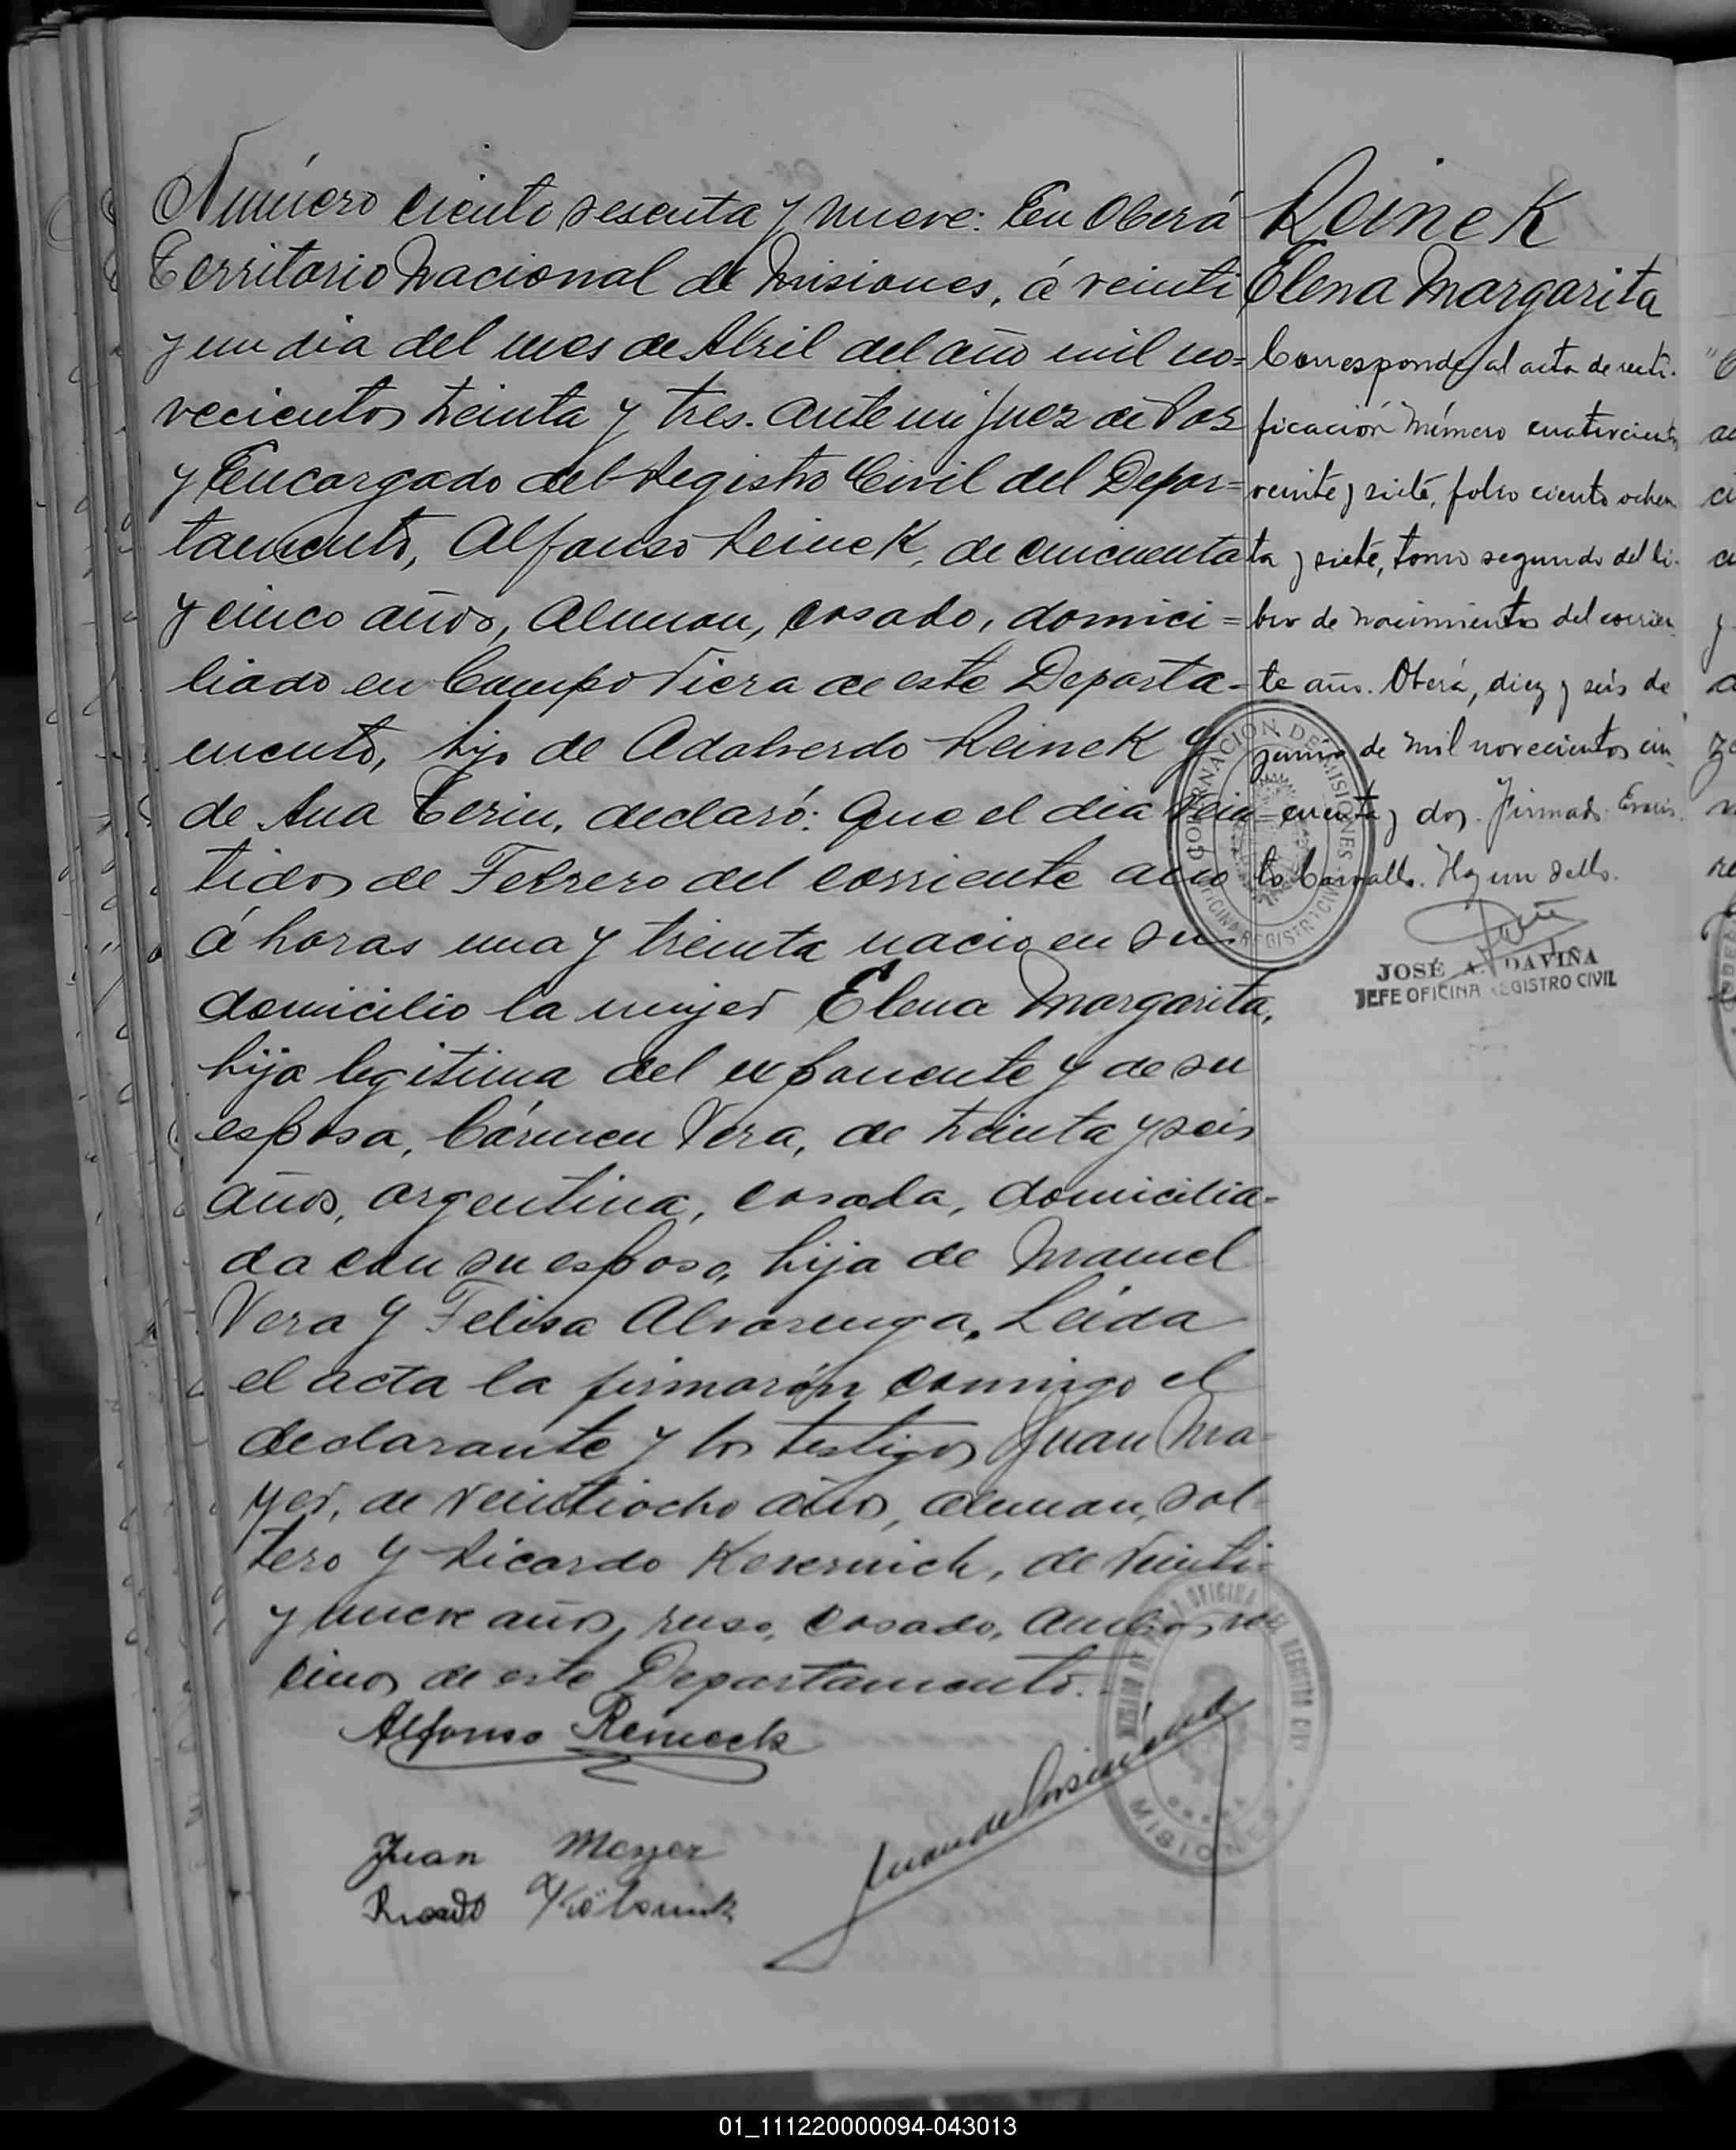 Número ciento sesenta y nueve: En Oberá
Territorio Nacional de Misiones, á veinti
y un dia del mes de Abril del año mil no=
vecientos treinta y tres. ante mi Juez de Paz
y Encargado del Registro Civil del Depar=
tamento, Alfonso Reinek, de cincuenta
y cinco años, Aleman, casado, domici=
liado en Campo Viera de este Departa-
mento, hijo de Adalverdo Reinek y
de Ana Terin, declaró: Que el dia vein=
tidos de Febrero del corriente año
á horas una y treinta nacio en su
domicilio la mujer Elena Margarita,
hija legitima del exponente y de su
esposa, Cármen Vera, de treinta y seis
años, argentina, casada, domicilia-
da con su esposo, hija de Manuel
Vera y Felisa Alvarenga. Leida
el acta la firmarón conmigo el
declarante y los testigos Juan Ma=
yer, de veintiocho años, aleman, sol=
tero y Ricardo Kesernich, de veinti=
y nueve años, ruso, casado, ambos ve
cinos de este Departamento.
Alfonso Reineck
Juan Meyer
Ricardo
Reinek
Elena Margarita
Corresponde al acta de recti-
ficación número cuatrocientos
veinte y siete, folio ciento ochen
ta y siete, tomo segundo del li-
bro de nacimientos del corrien
te año. Oberá, diez y seis de
junio de mil novecientos cin
cuenta y dos. Firmado: Evaris
to Carvallo. Hay un sello.
JOSÉ A. DAVIÑA
JEFE OFICINA REGISTRO CIVIL
GOBERNACION DE MISIONES
OFICINA REGISTRO CIVIL
OFICINA DEL REGISTRO CIVIL
MISIONES
01_111220000094-043013